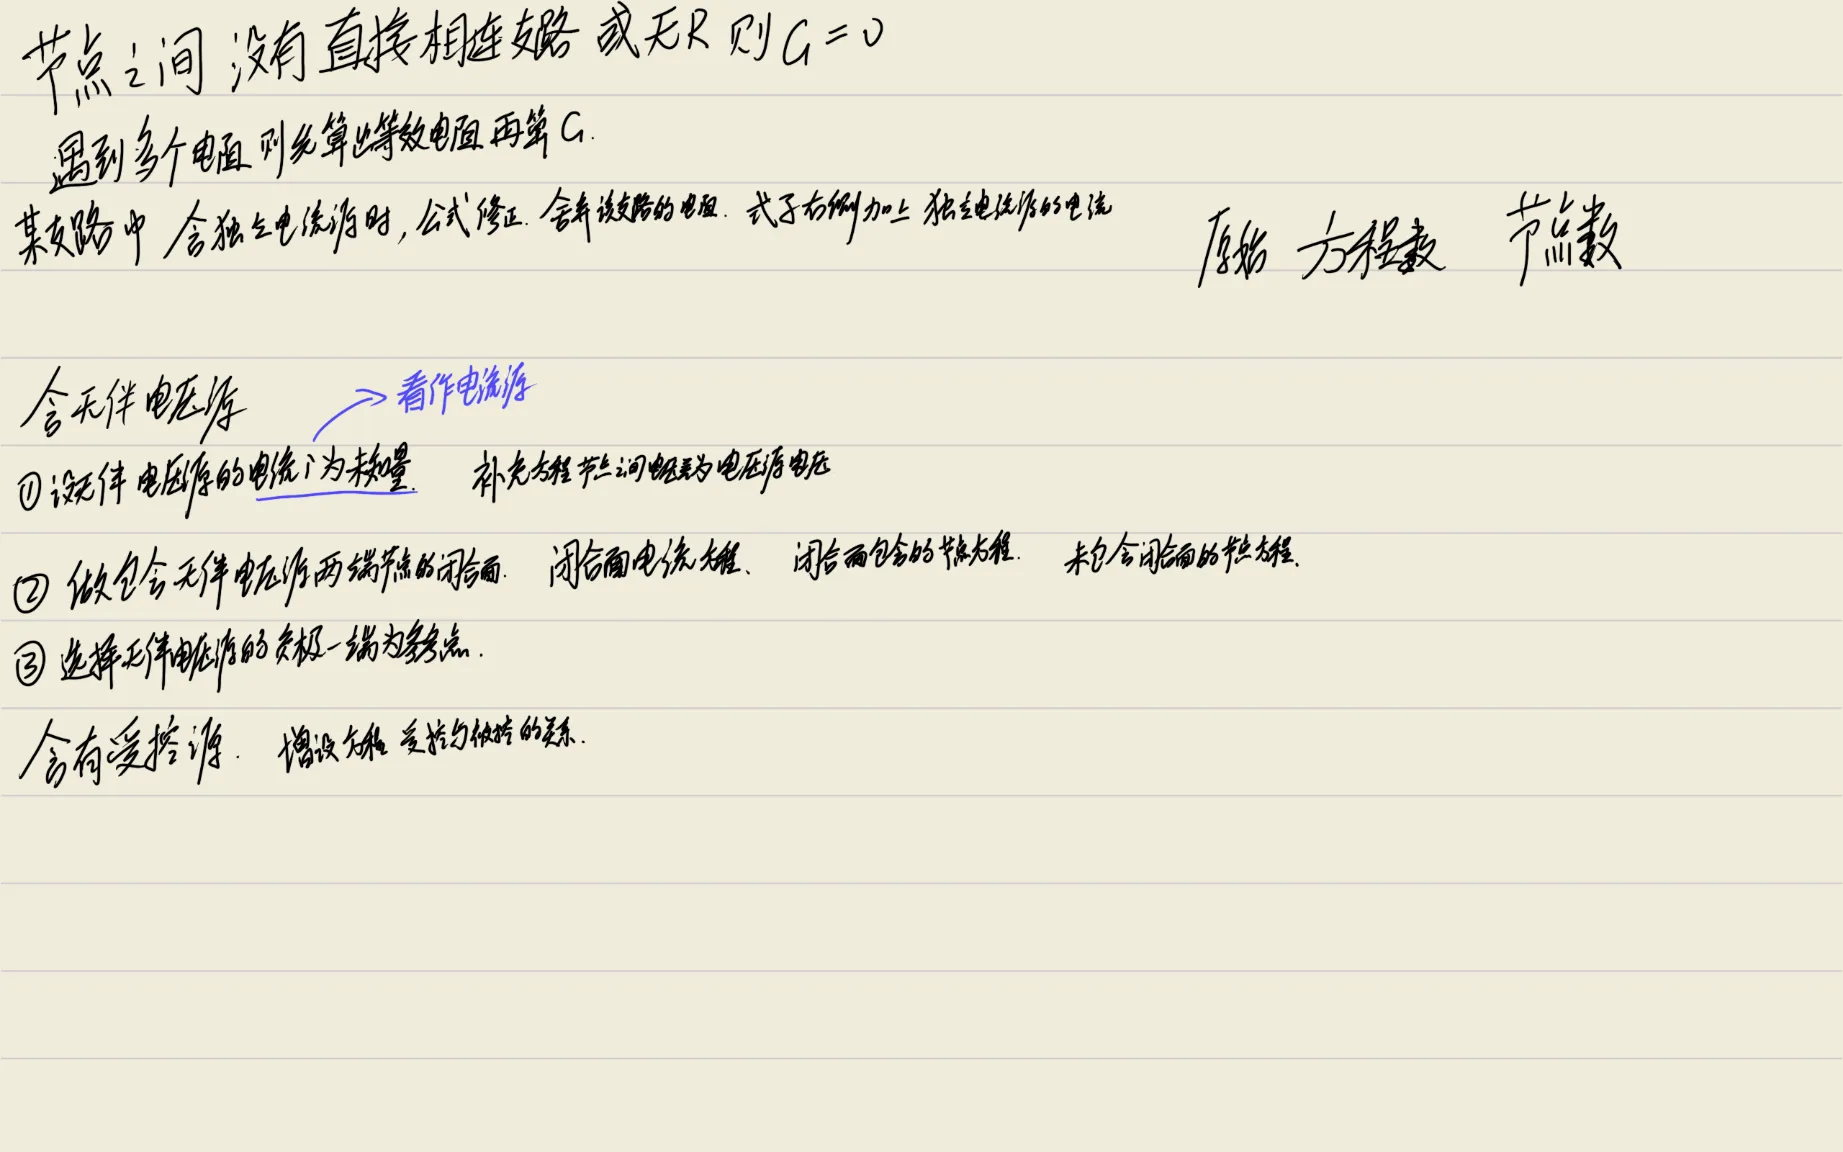 节点之间没有直接相连支路或无R则G=0
遇到多个电阻则先算出等效电阻再算G.
某支路中含独立电流源时,公式修正.舍弃该支路的电阻.式子右侧加上独立电流源的电流
原始方程数 节点数
含无伴电压源
看作电流源
①设无伴电压源的电流i为未知量. 补充方程节点之间电压差为电压源电压
②做包含无伴电压源两端节点的闭合面. 闭合面电流方程、闭合面包含的节点方程. 未包含闭合面的节点方程.
③选择无伴电压源的负极一端为参考点.
含有受控源. 增设方程受控与被控的关系.